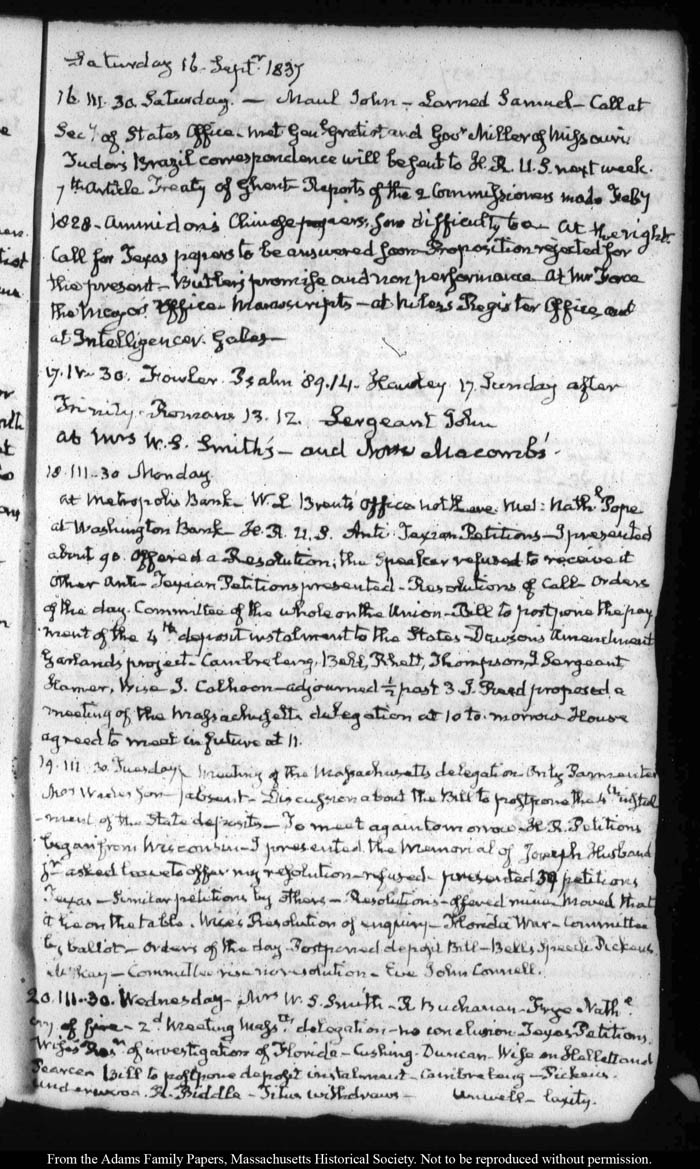 Saturday 16. Septr. 1837
16. III. 30. Saturday. — Maul John — Larned Samuel — Call at
Secy. of States Office. met Genl. Gratiot and Govr. Miller of Missouri
Tudors Brazil correspondence will be sent to H. R. U.S. next week.
7th Article Treaty of Ghent Reports of the 2 Commissioners made Feby
1828 — Ammidon's Chinese papers, some difficulty to at the right
Call for Texas papers to be answered soon Proposition rejected for
the present — Butler's promise and non performance At Mr Force
the Mayor's Office — Manuscripts — at Niles's Register Office, and
at Intelligencer. Gales —
17. IV. 30. Fowler. Psalm 89.14. Hawley 17. Sunday after
Trinity. Romans 13. 12. Sergeant John
at Mrs W. S. Smith's — and Macomb's.
18. III. 30 Monday
at Metropolis Bank — W. L Brent's Office not there. met: Nathl. Pope
at Washington Bank — H. R. U. S. Anti-Texian Petitions — I presented
about 90. Offered a Resolution; the Speaker refused to receive it
Other Anti-Texian Petitions presented — Resolutions of Call — Orders
of the day. Committee of the whole on the Union — Bill to postpone the pay
ment of the 4th deposit instalment to the States — Dawson's Amendment
Garlands project — Cambreleng, Bell, Rhett, Thompson, J Sergeant,
Hamer, Wise J. Calhoon — adjourned ½ past 3. J. Reed proposed a
meeting of the Massachusetts delegation at 10 to-morrow House
agreed to meet in future at 11.
19. III. 30 Tuesday. Meeting of the Massachusetts delegation. Only Parmenter
absent — Discussion about the Bill to postpone the 4th instal
-ment of the State deposits — To meet again tomorrow — H. R. Petitions
began from Wisconsin — I presented the Memorial of Joseph Husband
asked leave to offer my resolution — refused — presented 39 petitions
Texas — Similar petitions by others — Resolutions — offered mine Moved that
it lie on the table. Wise's Resolution of enquiry — Florida War — Committee
by ballot — Orders of the day. Postponed deposit Bill — Bells Speech Pickens
McKay — Committee rise no resolution — Eve John Connell.
20. III. 30. Wednesday — Mrs W. S. Smith — R Buchanan — Frye Nathl.
cry of fire — 2d Meeting Masstts. delegation — no conclusion Texas Petitions.
Wise's Resn. of investigation of Florida — Cushing. Duncan. Wise on Hallett and
Pearce. Bill to postpone deposit instalment — Cambreleng — Pickens.
Underwood. R. Biddle — Titus withdraws — Unwell — laxity.
From the Adams Family Papers, Massachusetts Historical Society. Not to be reproduced without permission.